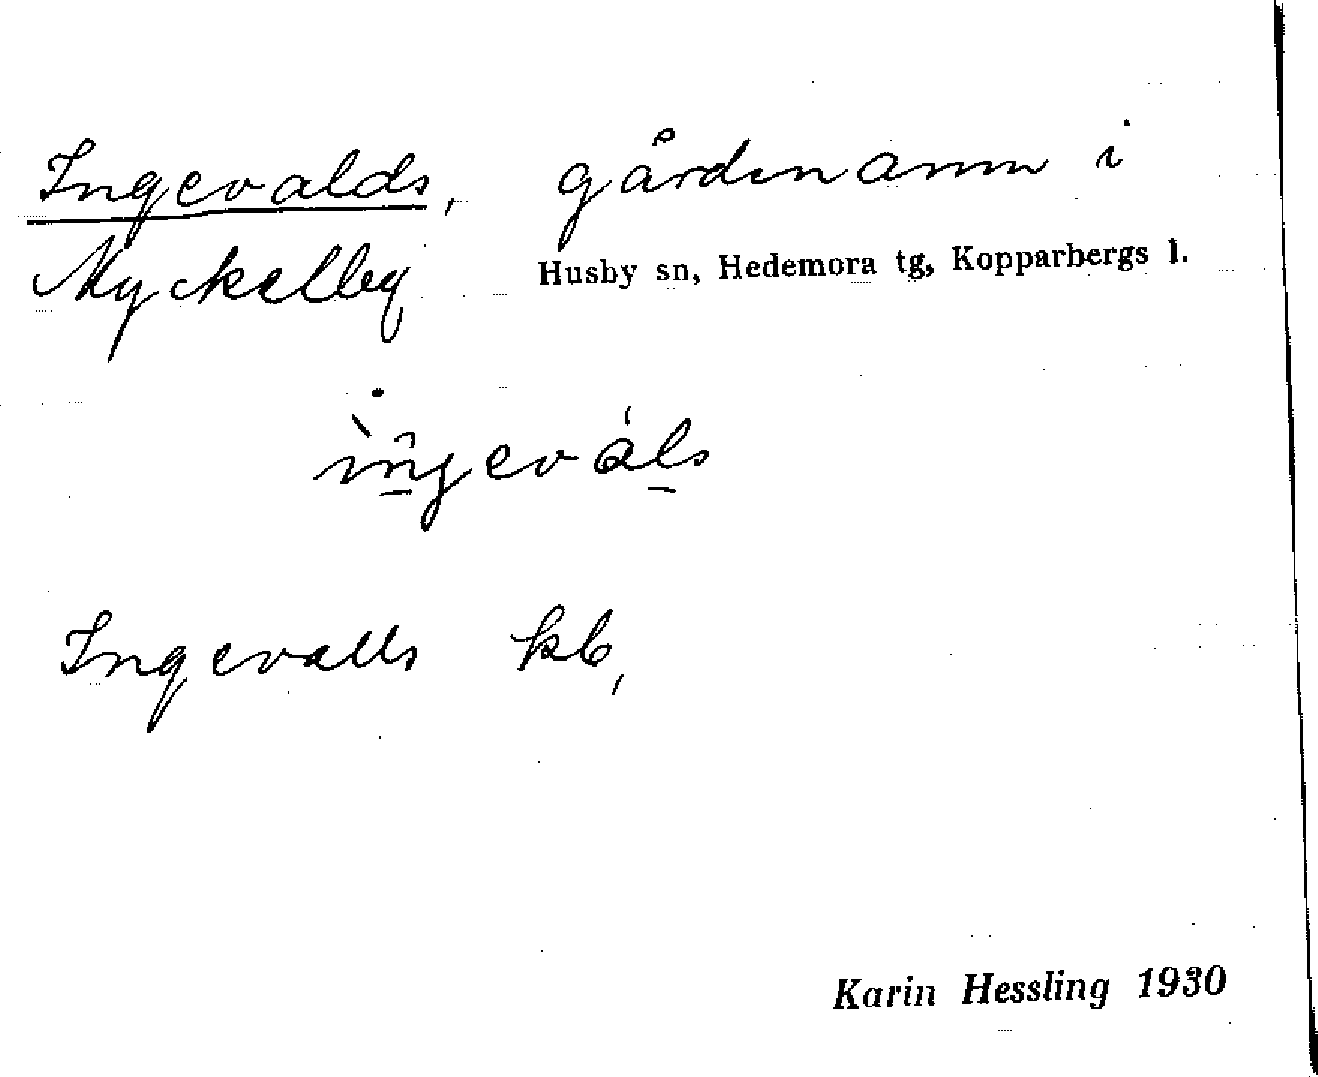 Ingevalds, gårdsnamn i
Myckelby Husby sn, Hedemora tg, Kopparbergs l.
ìngevá̀ls
Ingevalls kb,
Karin Hessling 1930